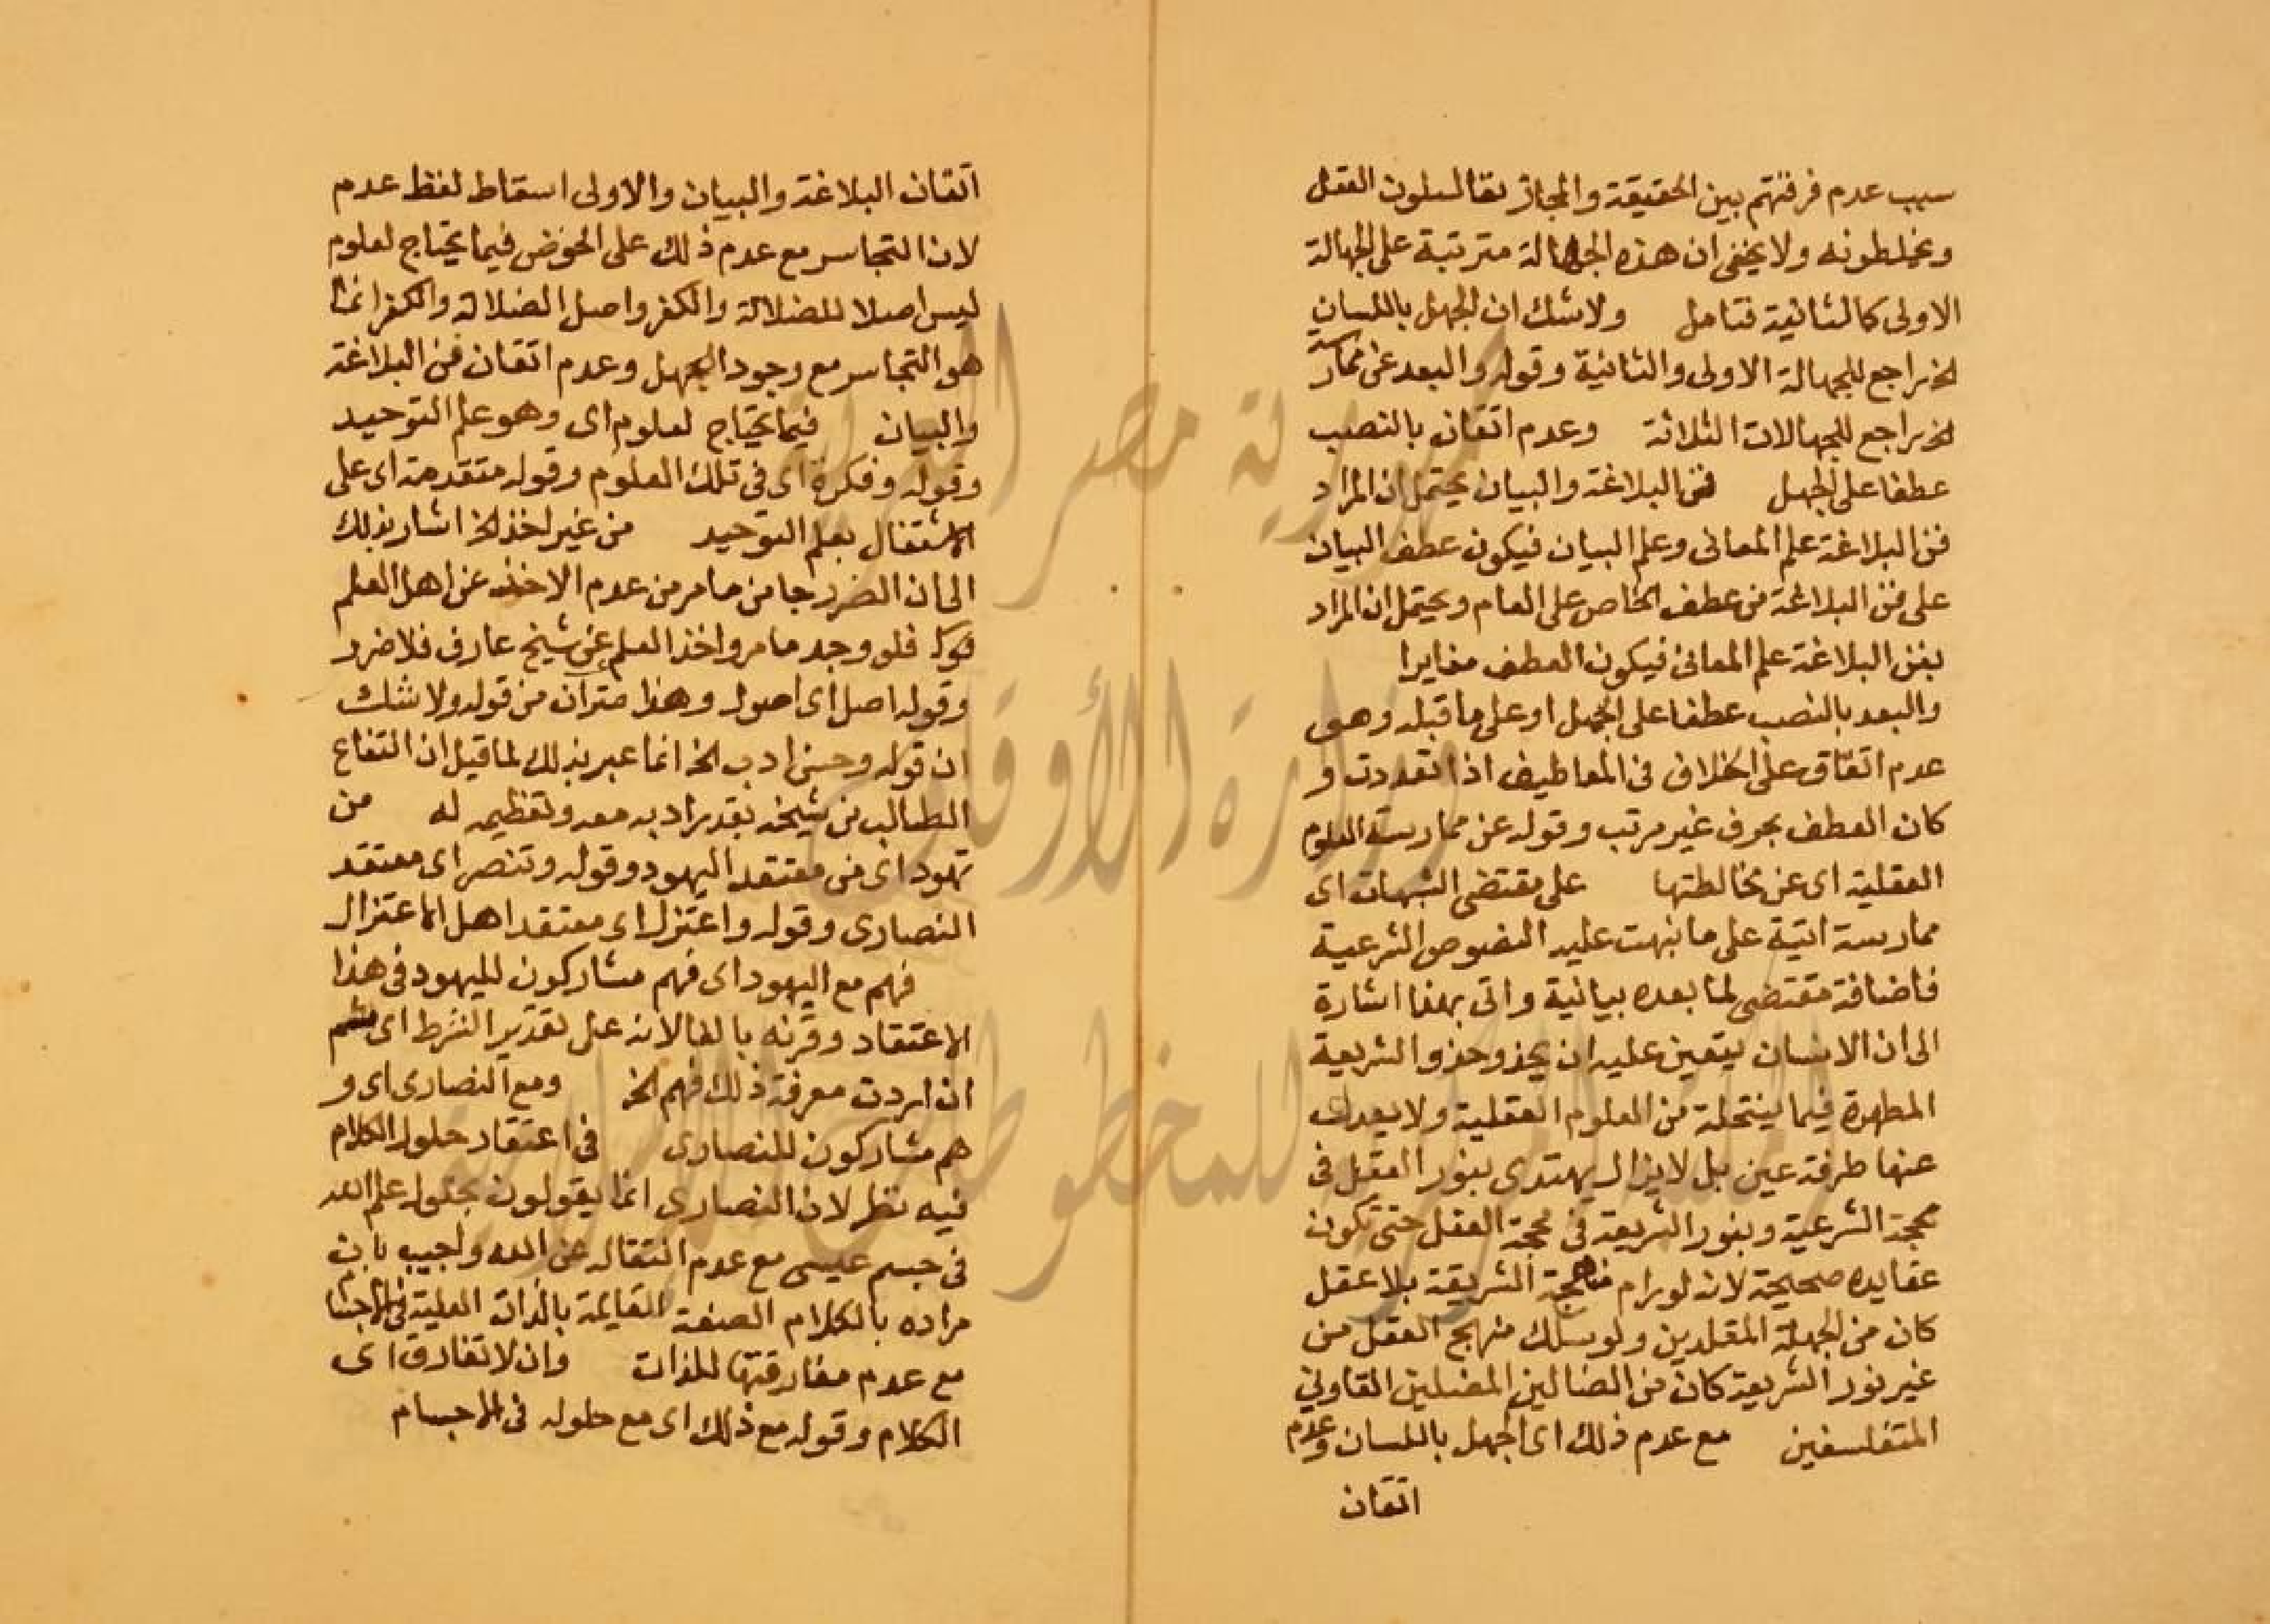 سبب عدم فرقتهم بين الحقيقة والمجاز بقا لسلون العقل
ويخلطونه ولا يخفى ان هذه الجهالة مترتبة على الجهالة
الاولى كالثانية فتامل ولا شك ان الجهل باللسان
الخ راجع للجهالة الاولى والثانية وقوله والبعد عن ممارسة
الخ راجع للجهالات الثلاثة وعدم اتقان بالنصب
عطفا على الجهل فن البلاغة والبيان يحتمل ان المراد
فن البلاغة علم المعانى وعلم البيان فيكون عطف البيان
على فن البلاغة من عطف الخاص على العام ويحتمل ان المراد
بفن البلاغة علم المعانى فيكون العطف مغايرا
والبعد بالنصب عطفا على الجهل او على ما قبله وهو
عدم اتقان على الخلاف فى المعاطيف اذا تعددت و
كان العطف بحرف غير مرتب وقوله عن ممارسة العلوم
العقلية اى عن مخالطتها على مقتضى الشبهات اى
ممارسة اتية على ما نبهت عليه النصوص الشرعية
فاضافة مقتضى لما بعده بيانية واتى بهذا اشارة
الى ان الانسان يتعين عليه ان يحذو حذو الشريعة
المطهرة فيما ينتحلة من العلوم العقلية ولا يعدل
عنها طرفة عين بل لا يزال يهتدى بنور العقل فى
محجة الشرعية وبنور الشريعة فى محجة العقل حتى تكون
عقايده صحيحة لانه لو رام محجة الشريعة بلا عقل
كان من الجهلة المقلدين ولو سلك منهج العقل من
غير نور الشريعة كان من الضالين المضلين الغاوين
المتفلسفين مع عدم ذلك اى الجهل باللسان وعدم
اتقان
اتقان البلاغة والبيان والاولى اسقاط لفظ عدم
لان التجاسر مع عدم ذلك على الخوض فيما يحتاج لعلوم
ليس اصلا للضلالة والكفر واصل الضلالة والكفر انما
هو التجاسر مع وجود الجهل وعدم اتقان فن البلاغة
والبيان فيما يحتاج لعلوم اى وهو علم التوحيد
وقوله وفكرة اى فى تلك العلوم وقوله متقدمة اى على
الاشتغال بعلم التوحيد من غير اخذ الخ اشار بذلك
الى ان الضرر جا من ما مر من عدم الاخذ عن اهل العلم
قوله فلو وجد ما مر واخذ العلم عن شيخ عارف فلا ضرر
وقوله اصل اى اصول وهذا خبر ان من قوله ولا شك
ان قوله وحسن ادب الخ انما عبر بذلك لما قيل ان انتفاع
الطالب من شيخه بقدر ادبه معه وتعظيمه له من
تهود اى من معتقد اليهود وقوله وتنصر اى معتقد
النصارى وقوله واعتزل اى معتقد اهل الاعتزال
فهم مع اليهود اى فهم مشاركون لليهود فى هذا
الاعتقاد وقرنه بالفا لانه على تقدير الشرط اى
ان اردت معرفة ذلك فهم الخ ومع النصارى اى و
هم مشاركون للنصارى فى اعتقاد حلول الكلام
فيه نظر لان النصارى انما يقولون بحلول علم الله
فى جسم عيسى مع عدم انتقاله عن الله واجيب بان
مراده بالكلام الصفة القايمة بالذات العلية فى الاجسام
مع عدم مفارقتها للذات وان لا تفارق اى
الكلام وقوله مع ذلك اى مع حلوله فى الاجسام